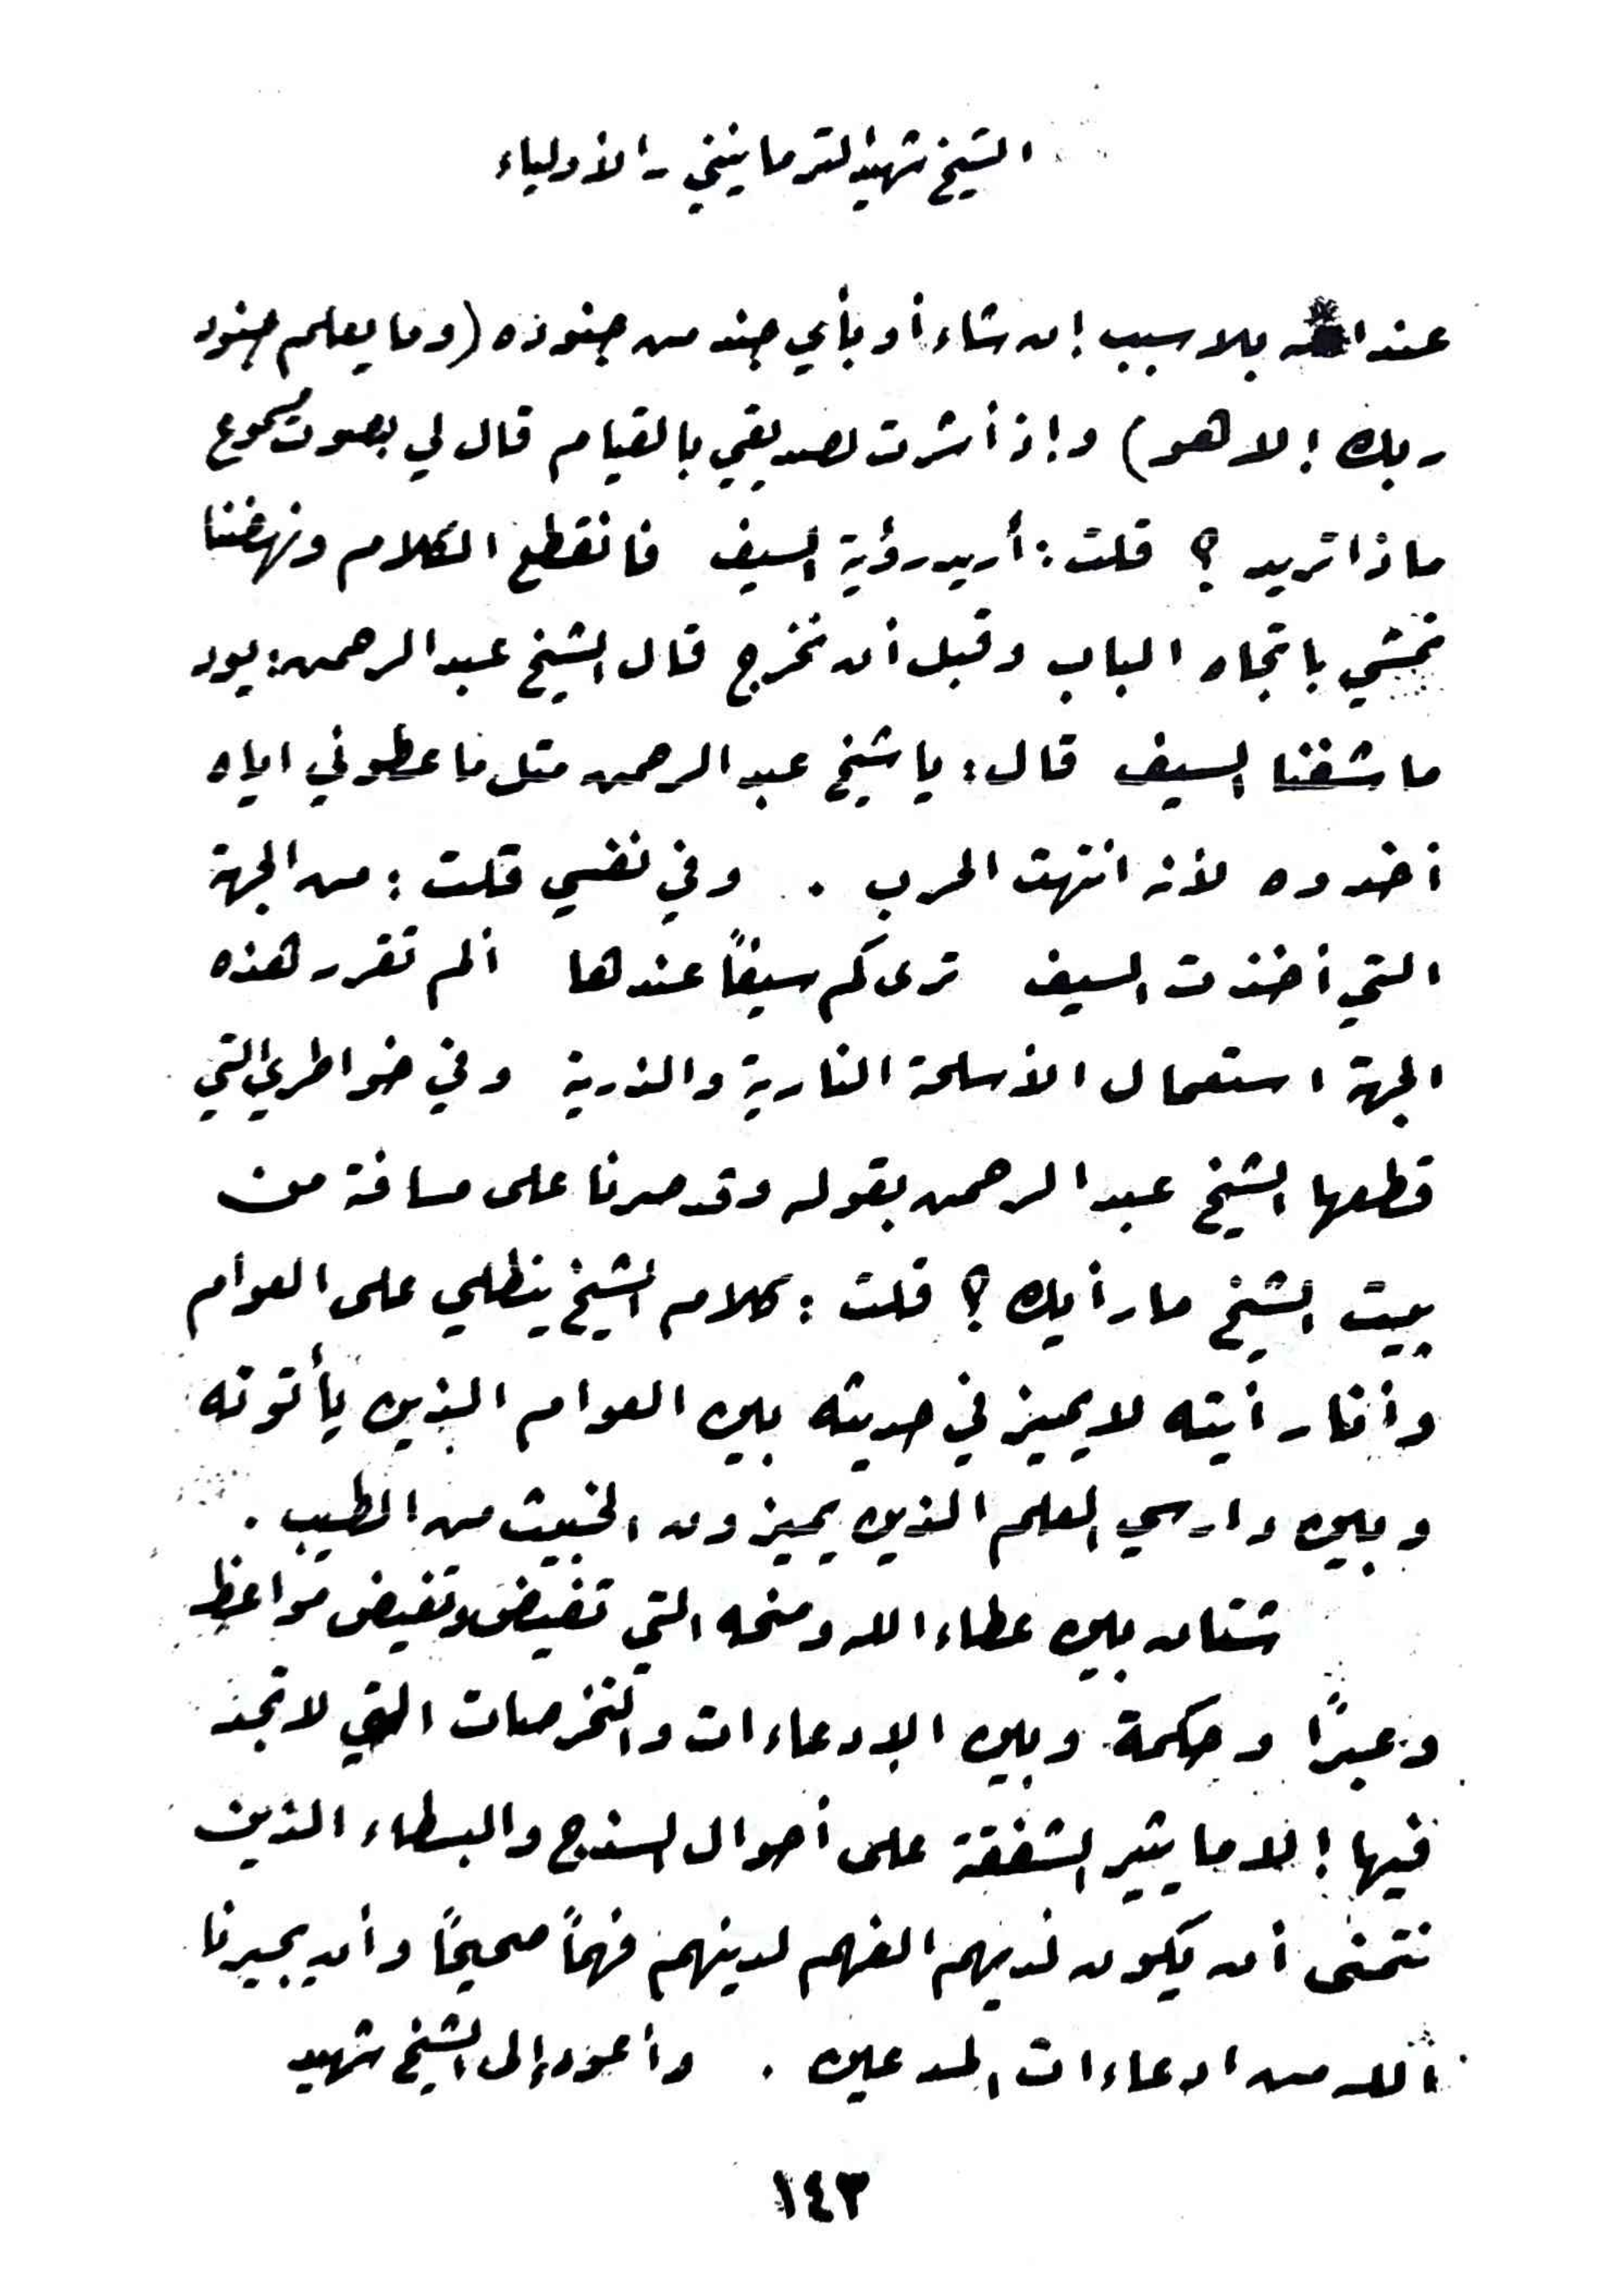 الشيخ شهيد الترمانيني - الأولياء
عند الله بلا سبب إن شاء أو بأي جند من جنوده (وما يعلم جنود
ربك إلا هو) وإذ أشرت لصديقي بالقيام قال لي بصوت مسموع
ماذا تريد ؟ قلت : أريد رؤية السيف فانقطع الكلام ونهضنا
نمشي باتجاه الباب وقبل أن نخرج قال الشيخ عبد الرحمن : يود
ما شفنا السيف قال : يا شيخ عبد الرحمن متل ما عطوني اياه
أخدوه لأنه انتهت الحرب . وفي نفسي قلت : من الجهة
التي أخذت السيف ترى كم سيفاً عندها ألم تقرر هذه
الجهة استعمال الأسلحة النارية والذرية وفي خواطري التي
قطعها الشيخ عبد الرحمن بقوله وقد صرنا على مسافة من
بيت الشيخ ما رأيك ؟ قلت : كلام الشيخ ينطلي على العوام
وأنا رأيته لا يميز في حديثه بين العوام الذين يأتونه
وبين دارسي العلم الذين يميزون الخبيث من الطيب .
شتان بين عطاء الله ومنحه التي تفيض وتفيض مواعظ
وعبرًا وحكمة وبين الإدعاءات والتخرصات التي لا تجد
فيها إلا ما يثير الشفقة على أحوال السذج والبسطاء الذين
نتمنى أن يكون لديهم الفهم لدينهم فهماً صحيحاً وأن يجيرنا
الله من ادعاءات المدعين . وأعود إلى الشيخ شهيد
١٤٣